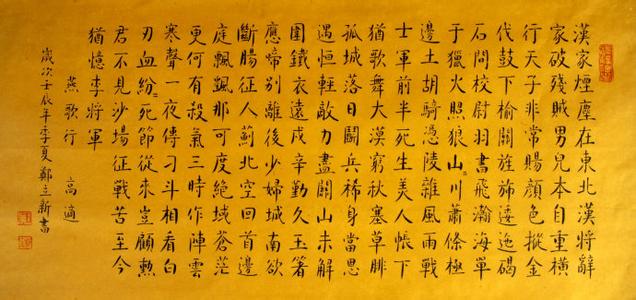 漢家煙塵在東北漢將辭
家破殘賊男兒本自重橫
行天子非常賜顏色摐金
伐鼓下榆關旌旆逶迤碣
石間校尉羽書飛瀚海單
于獵火照狼山〻川蕭條極
邊土胡騎憑陵雜風雨戰
士軍前半死生美人帳下
猶歌舞大漠窮秋塞草腓
孤城落日鬭兵稀身當恩
遇恒輕敵力盡關山未解
圍鐵衣遠戍辛勤久玉箸
應啼別離後少婦城南欲
斷腸征人薊北空回首邊
庭飄颻那可度絕域蒼茫
更何有殺氣三時作陣雲
寒聲一夜傳刁斗相看白
刃血紛〻死節從來豈顧勳
君不見沙場征戰苦至今
猶憶李將軍
燕歌行 高適
歲次壬辰年季夏鄭立新書